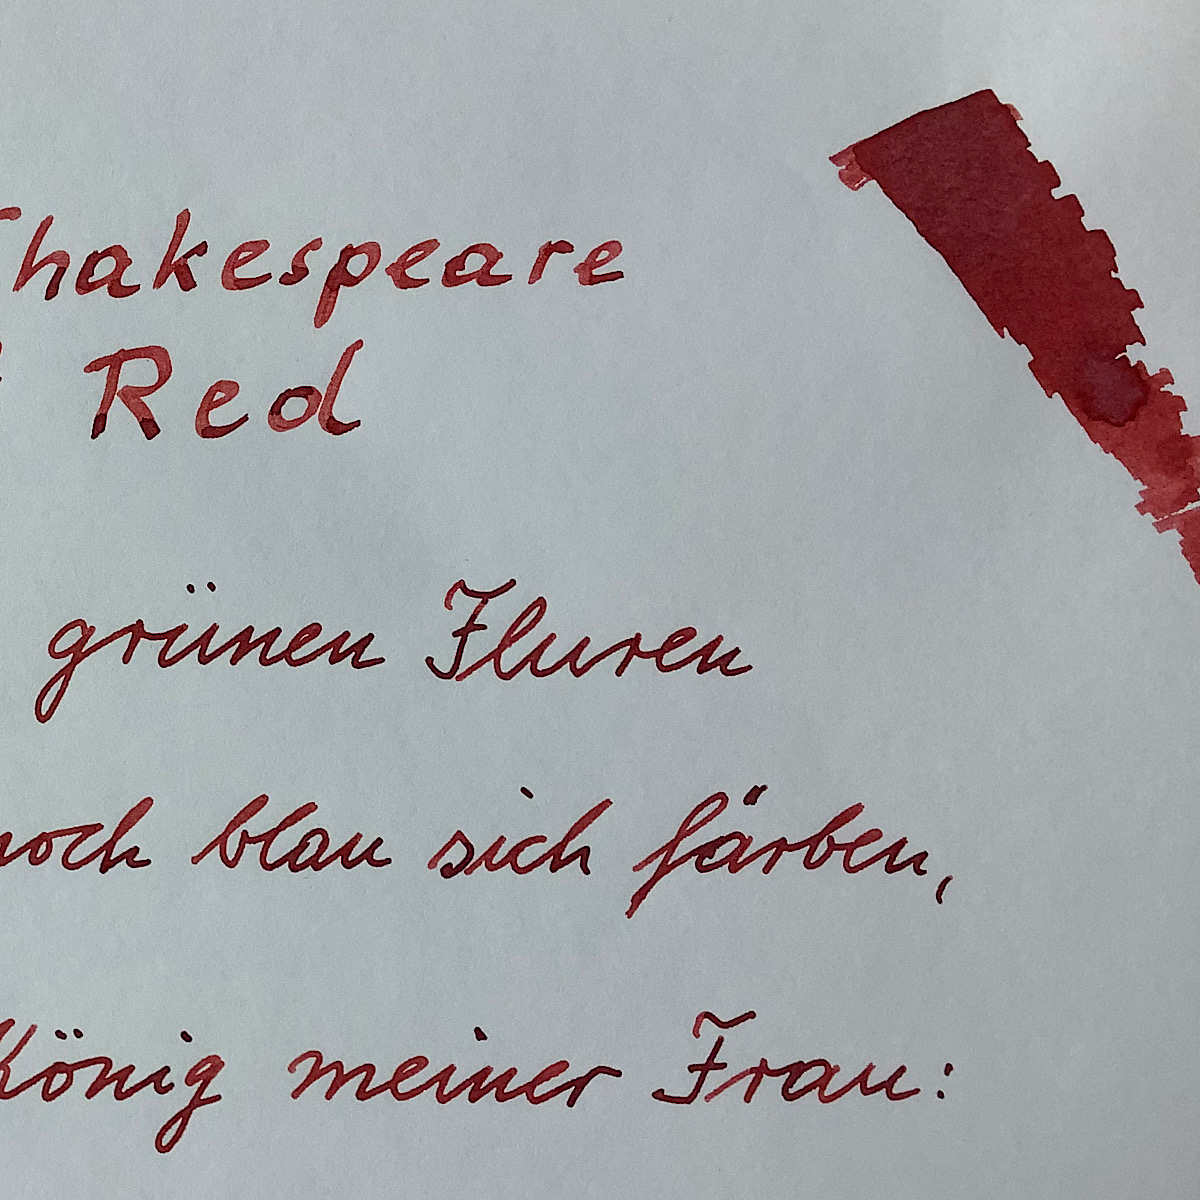 Shakespeare
Red
grünen Fluren
noch blau sich färben,
König meiner Frau: